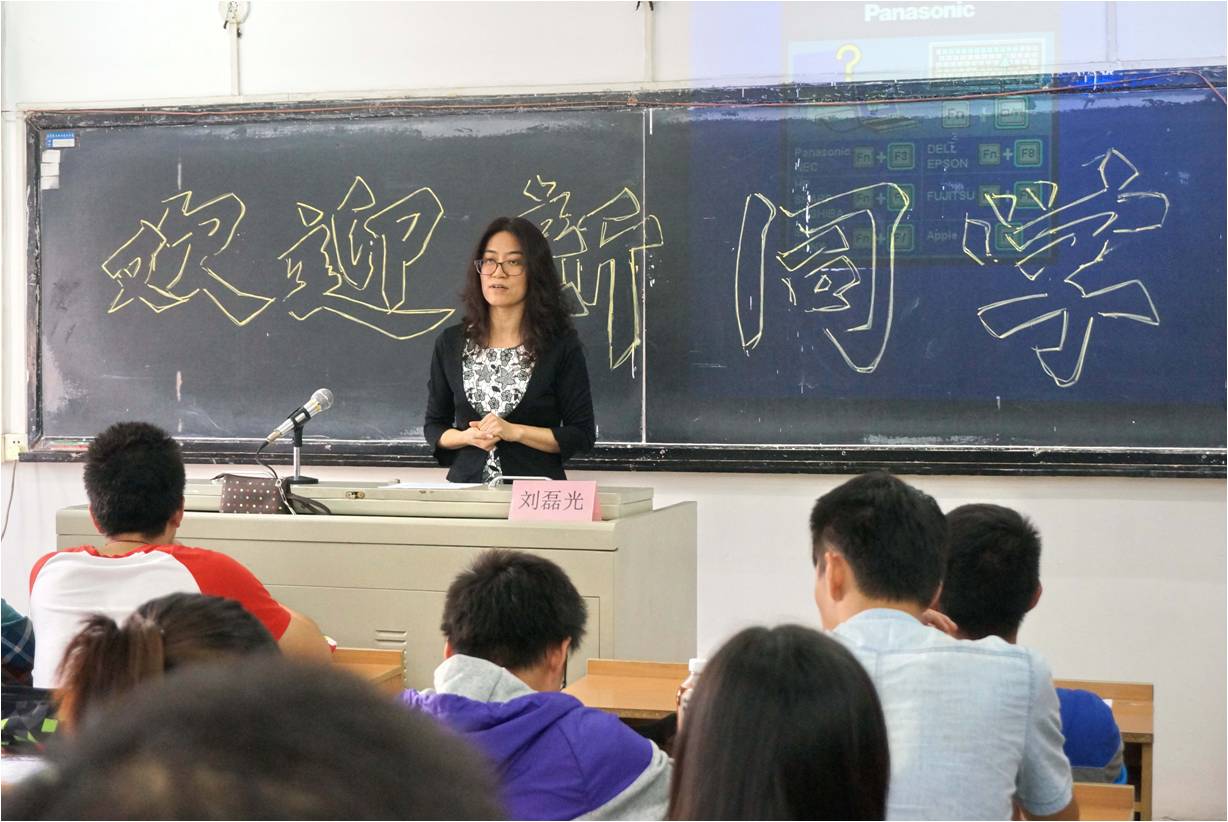 Panasonic
?
Fn
Panasonic Fn + F3 DELL Fn + F8
NEC EPSON
FUJITSU
Apple
欢迎新同学
刘磊光